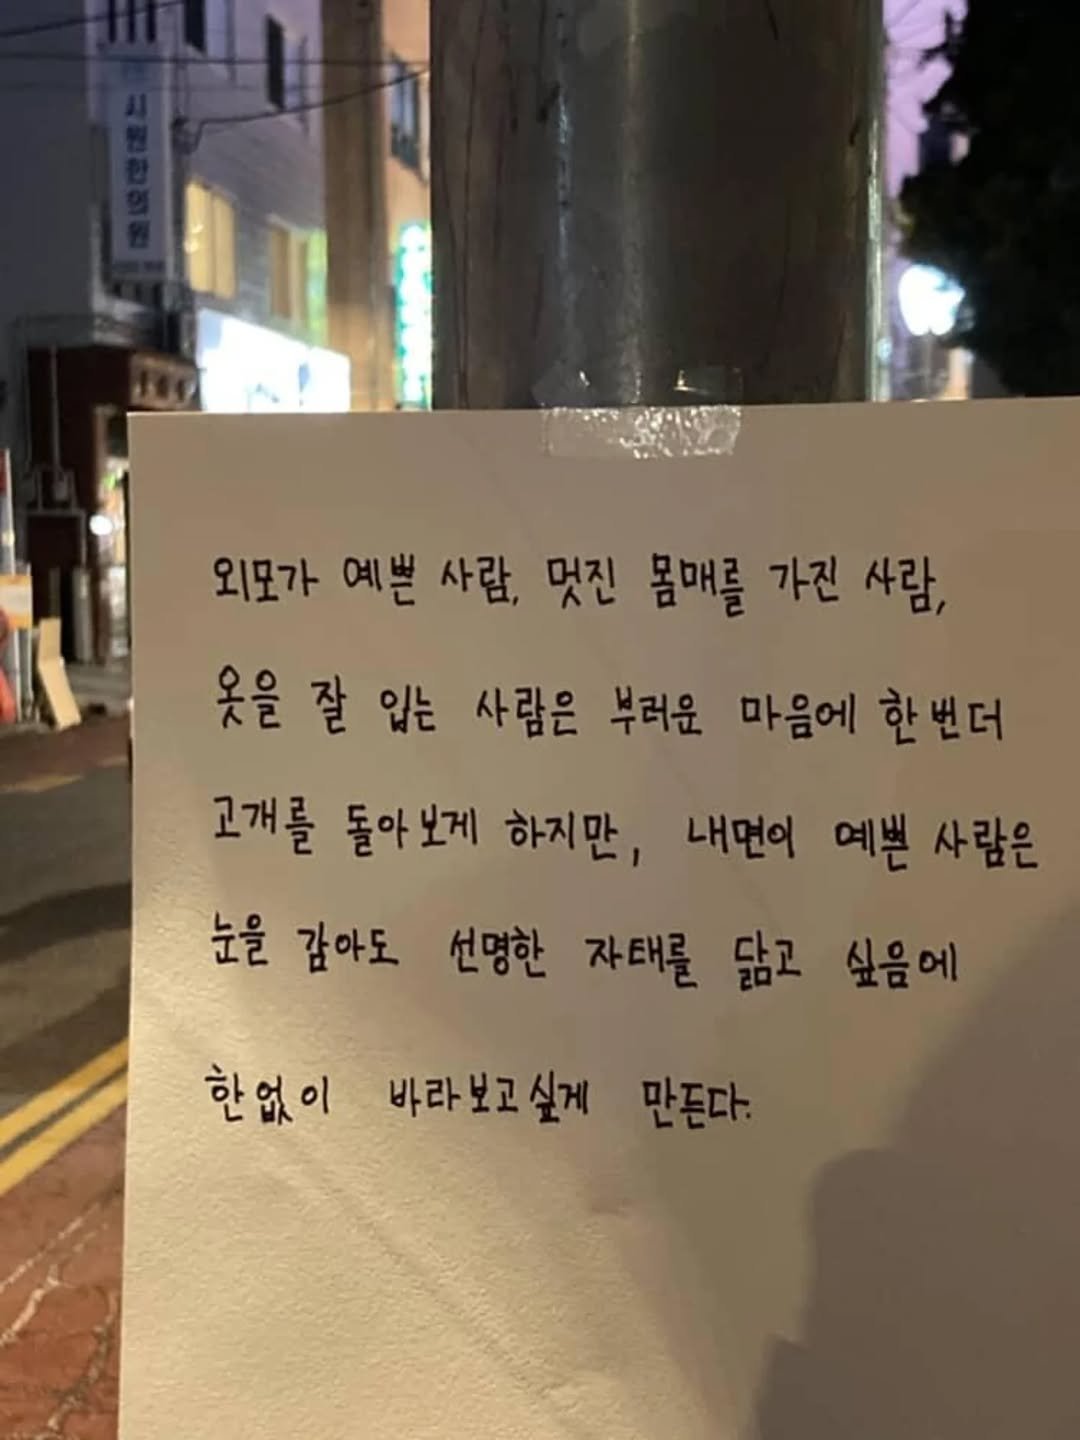 시원한의원
외모가 예쁜 사람, 멋진 몸매를 가진 사람,
옷을 잘 입는 사람은 부러운 마음에 한번더
고개를 돌아보게 하지만, 내면이 예쁜 사람은
눈을 감아도 선명한 자태를 닮고 싶음에
한없이 바라보고싶게 만든다.